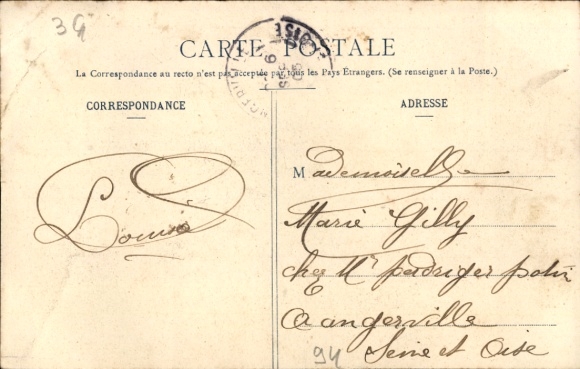 3G
CARTE POSTALE
La Correspondance au recto n'est pas acceptée par tous les Pays Étrangers. (Se renseigner à la Poste.)
CORRESPONDANCE
Louise
ADRESSE
Mademoiselle
Marie Gilly
chez Mr
a angerville
Seine et Oise
94